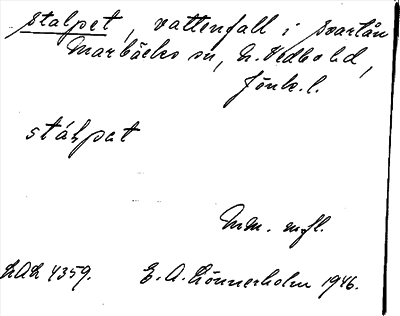 Stalpet, vattenfall i Svartån
Marbäcks sn, N. Vedbo hd,
Jönk. l.
stálpat
Mm. m.fl.
LAL 4359. E. A. Lönnerholm 1946.